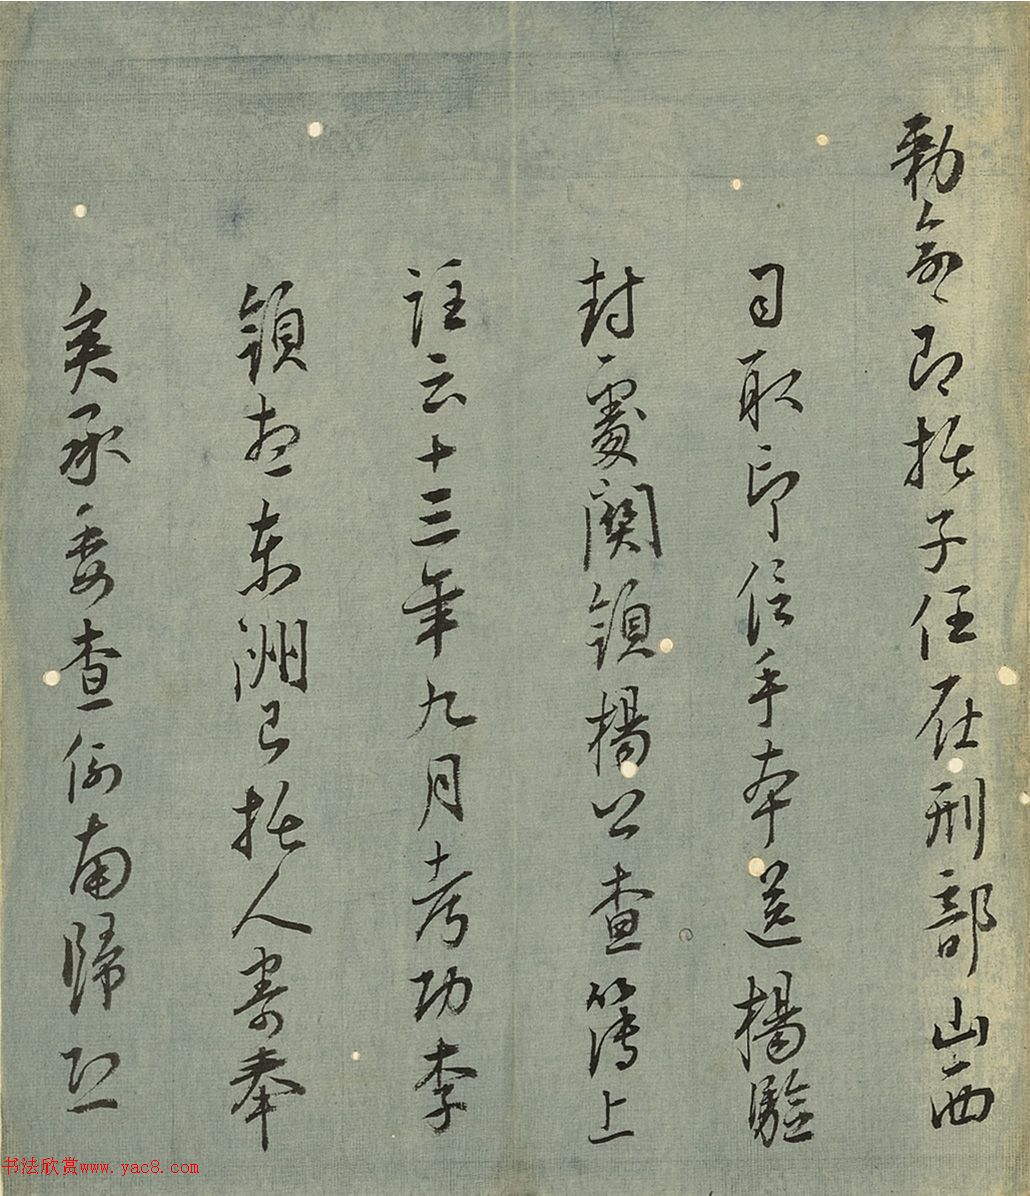 勅命即托子任在刑部山西
司取印信手本送楊驗
封處関領楊公查簿上
註云十三年九月考功李
領想東洲已托人寄奉
矣承委查例南歸想
书法欣赏www.yac8.com